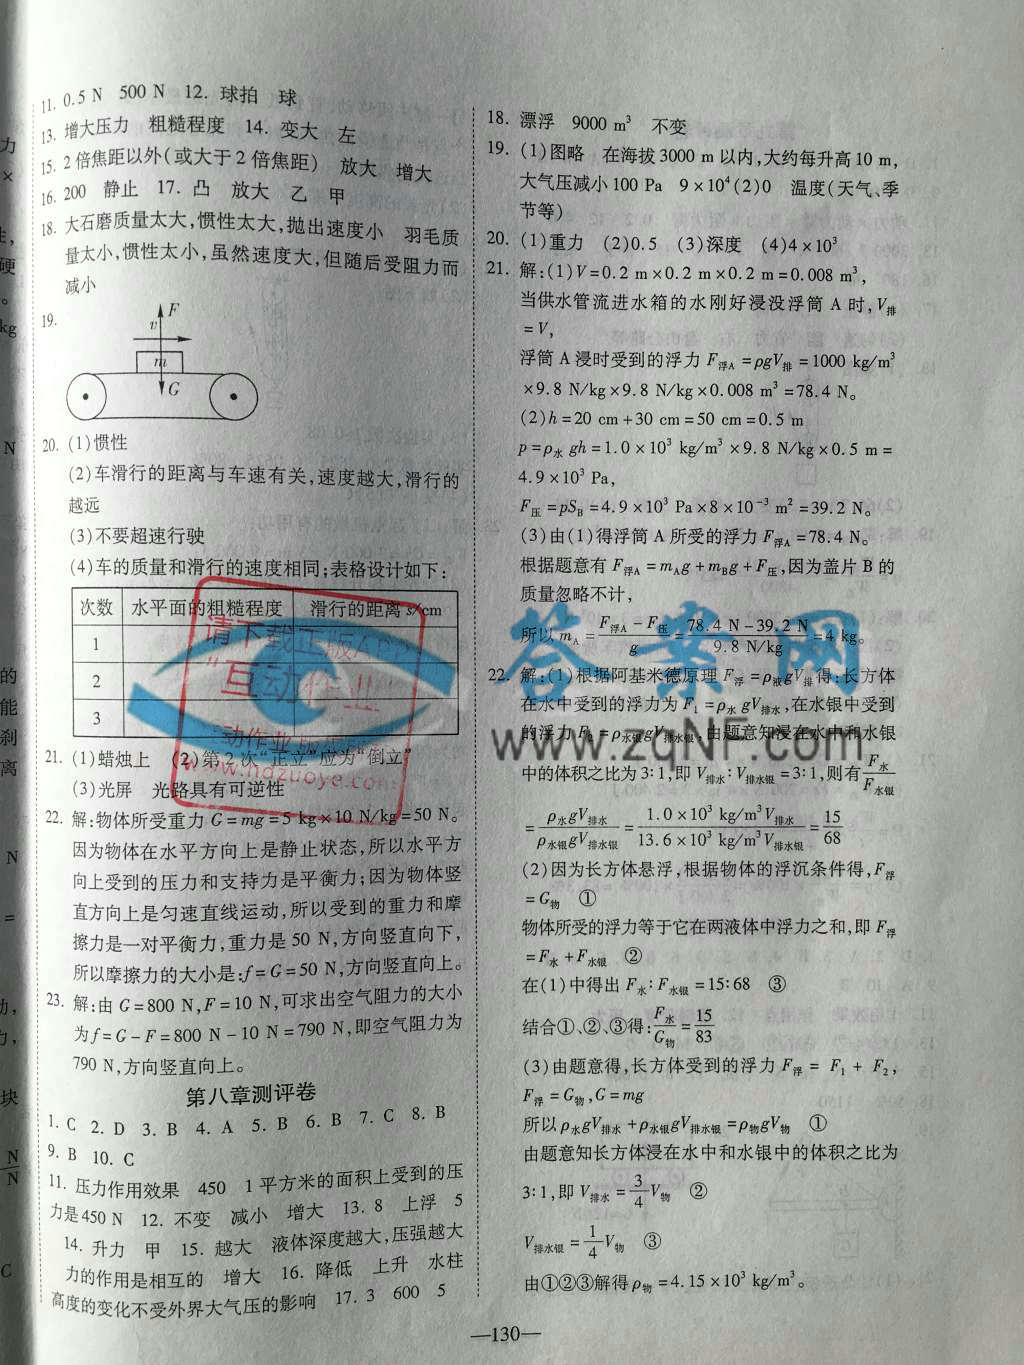 11. 0.5 N　500 N　12. 球拍　球
13. 增大压力　粗糙程度　14. 变大　左
15. 2 倍焦距以外(或大于 2 倍焦距)　放大　增大
16. 200　静止　17. 凸　放大　乙　甲
18. 大石磨质量太大,惯性太大,抛出速度小　羽毛质
量太小,惯性太小,虽然速度大,但随后受阻力而
减小
19.
F
v
m
G
20. (1)惯性
(2)车滑行的距离与车速有关,速度越大,滑行的
越远
(3)不要超速行驶
(4)车的质量和滑行的速度相同;表格设计如下:
次数　水平面的粗糙程度　滑行的距离 s/cm
1
2
3
21. (1)蜡烛上　(2)第 2 次“正立”应为“倒立”
(3)光屏　光路具有可逆性
22. 解:物体所受重力 G=mg=5 kg×10 N/kg=50 N。
因为物体在水平方向上是静止状态,所以水平方
向上受到的压力和支持力是平衡力;因为物体竖
直方向上是匀速直线运动,所以受到的重力和摩
擦力是一对平衡力,重力是 50 N,方向竖直向下,
所以摩擦力的大小是:f=G=50 N,方向竖直向上。
23. 解:由 G=800 N,F=10 N,可求出空气阻力的大小
为 f=G-F=800 N-10 N=790 N,即空气阻力为
790 N,方向竖直向上。
第八章测评卷
1. C　2. D　3. B　4. A　5. B　6. B　7. C　8. B
9. B　10. C
11. 压力作用效果　450　1 平方米的面积上受到的压
力是 450 N　12. 不变　减小　增大　13. 8　上浮　5
14. 升力　甲　15. 越大　液体深度越大,压强越大
力的作用是相互的　增大　16. 降低　上升　水柱
高度的变化不受外界大气压的影响　17. 3　600　5
18. 漂浮　9000 m³　不变
19. (1)图略　在海拔 3000 m 以内,大约每升高 10 m,
大气压减小 100 Pa　9×10⁴ (2)0　温度(天气、季
节等)
20. (1)重力　(2)0.5　(3)深度　(4)4×10³
21. 解:(1)V=0.2 m×0.2 m×0.2 m=0.008 m³,
当供水管流进水箱的水刚好浸没浮筒 A 时,V排
=V,
浮筒 A 浸时受到的浮力 F浮A=ρgV排=1000 kg/m³
×9.8 N/kg×9.8 N/kg×0.008 m³=78.4 N。
(2)h=20 cm+30 cm=50 cm=0.5 m
p=ρ水 gh=1.0×10³ kg/m³×9.8 N/kg×0.5 m=
4.9×10³ Pa,
F压=pSB=4.9×10³ Pa×8×10⁻³ m²=39.2 N。
(3)由(1)得浮筒 A 所受的浮力 F浮A=78.4 N。
根据题意有 F浮A=mAg+mBg+F压,因为盖片 B 的
质量忽略不计,
所以 mA=(F浮A-F压)/g=(78.4 N-39.2 N)/(9.8 N/kg)=4 kg。
22. 解:(1)根据阿基米德原理 F浮=ρ液gV排得:长方体
在水中受到的浮力为 F₁=ρ水 gV排水,在水银中受到
的浮力 F₂=ρ水银gV排水银,由题意知浸在水中和水银
中的体积之比为 3∶1,即 V排水∶V排水银=3∶1,则有F水/F水银
=ρ水gV排水/ρ水银gV排水银=1.0×10³ kg/m³V排水/13.6×10³ kg/m³V排水银=15/68
(2)因为长方体悬浮,根据物体的浮沉条件得,F浮
=G物　①
物体所受的浮力等于它在两液体中浮力之和,即 F浮
=F水+F水银　②
在(1)中得出 F水∶F水银=15∶68　③
结合①、②、③得:F水/G物=15/83
(3)由题意得,长方体受到的浮力 F浮 = F₁ + F₂,
F浮=G物,G=mg
所以 ρ水gV排水+ρ水银gV排水银=ρ物gV物　①
由题意知长方体浸在水中和水银中的体积之比为
3∶1,即 V排水=3/4V物　②
V排水银=1/4V物　③
由①②③解得 ρ物=4.15×10³ kg/m³。
—130—
请下载正版APP
“互动作业”
答案网
www.zqNF.com